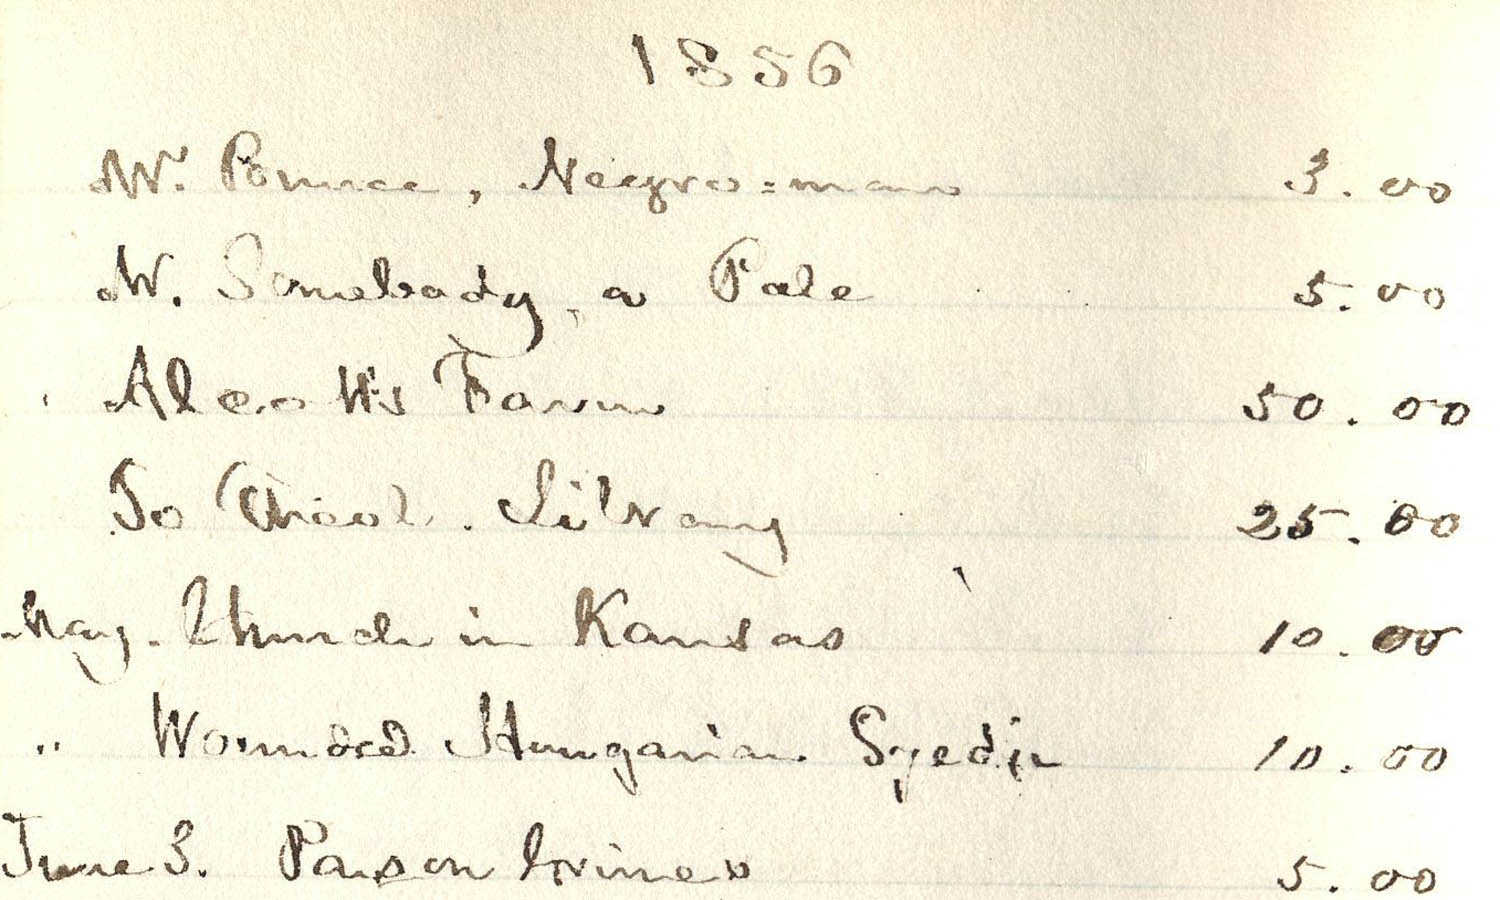 1856
Mr. , Negro=man 3.00
Mr. Somebody, a Pole 5.00
Alcott's Farm 50.00
To Theol. Library 25.00
May. Church in Kansas 10.00
" Wounded Hungarian 10.00
June 3. Parson 5.00